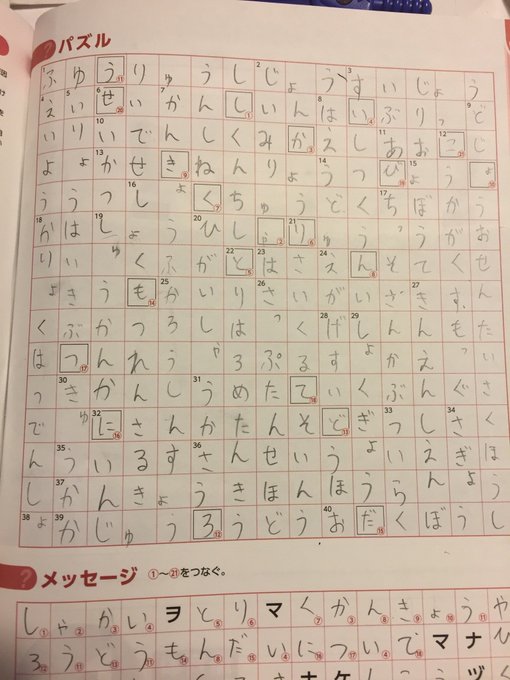 パズル
ふゆうりゅうしじょうすいじょう
えいせいかんしいんはいぶりっど
いりいでんしくみかえしあおこじ
よょかせきねんりょうつびょうょ
ううつしょくちゅうどくちぼかう
かはしょうひしゃりゅうっうがお
りいゅくふがとはさえんそてくせ
ょきうもかいりさいがいざきすん
くぶかつろしはっくげしんんもた
はつんれうゃろぷるすょかえっい
っきかんしうめたていくぶんぐさ
でゅにさんかたんそどぎっしさく
んういるすさんせいうょいえぎほ
しかんきょうきほんほうらんょう
ょかじゅうろうどうおだくぼうし
メッセージ ①〜㉑をつなぐ。
しゃかいヲとりマくかんきょうや
ろうどうもんだいについてマナ